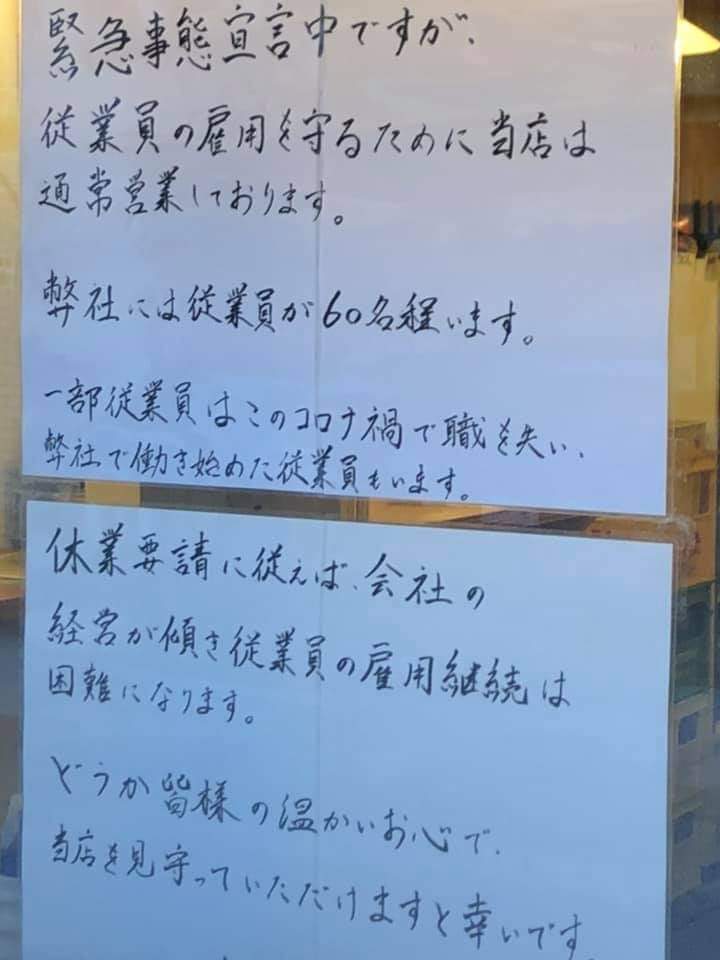 緊急事態宣言中ですが、
従業員の雇用を守るために当店は
通常営業しております。
弊社には従業員が60名程います。
一部従業員はこのコロナ禍で職を失い、
弊社で働き始めた従業員もいます。
休業要請に従えば、会社の
経営が傾き従業員の雇用継続は
困難になります。
どうか皆様の温かいお心で、
当店を見守っていただけますと幸いです。